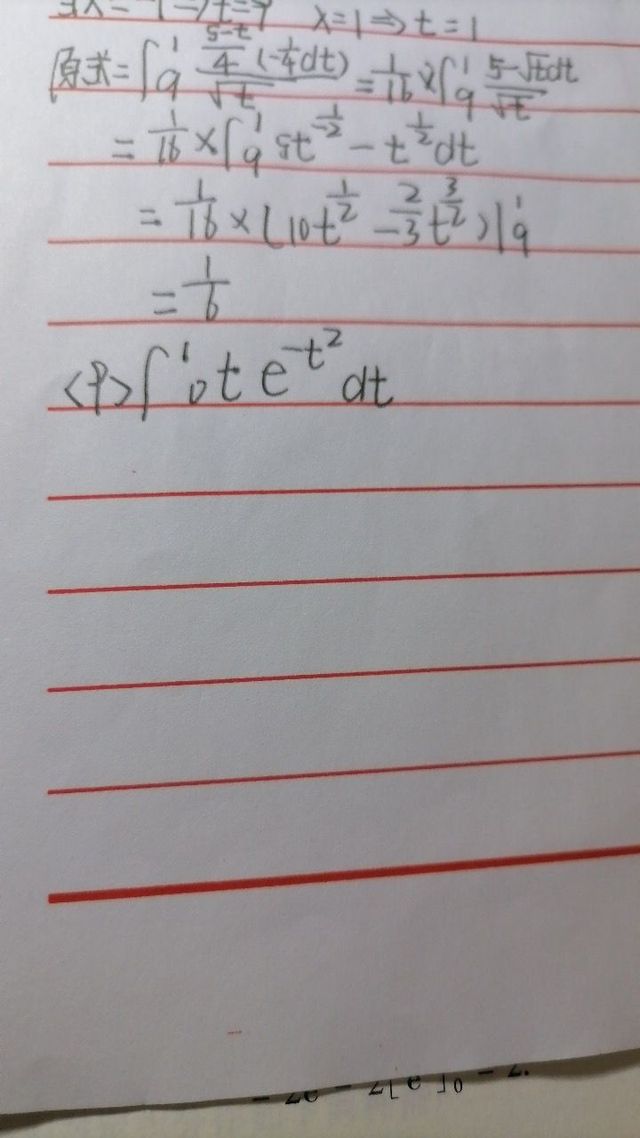 x=1⇒t=1
原式=∫₉¹ \frac{\frac{5-t}{4}(-\frac{1}{4}dt)}{\sqrt{t}} = \frac{1}{16}×∫₉¹ \frac{5-\sqrt{t}dt}{\sqrt{t}}
= \frac{1}{16}×∫₉¹ 5t^{\frac{1}{-2}} - t^{\frac{1}{2}}dt
= \frac{1}{16}×(10t^{\frac{1}{2}} - \frac{2}{3}t^{\frac{3}{2}})|₉¹
= \frac{1}{6}
<9>∫₀¹ t e^{-t^2} dt